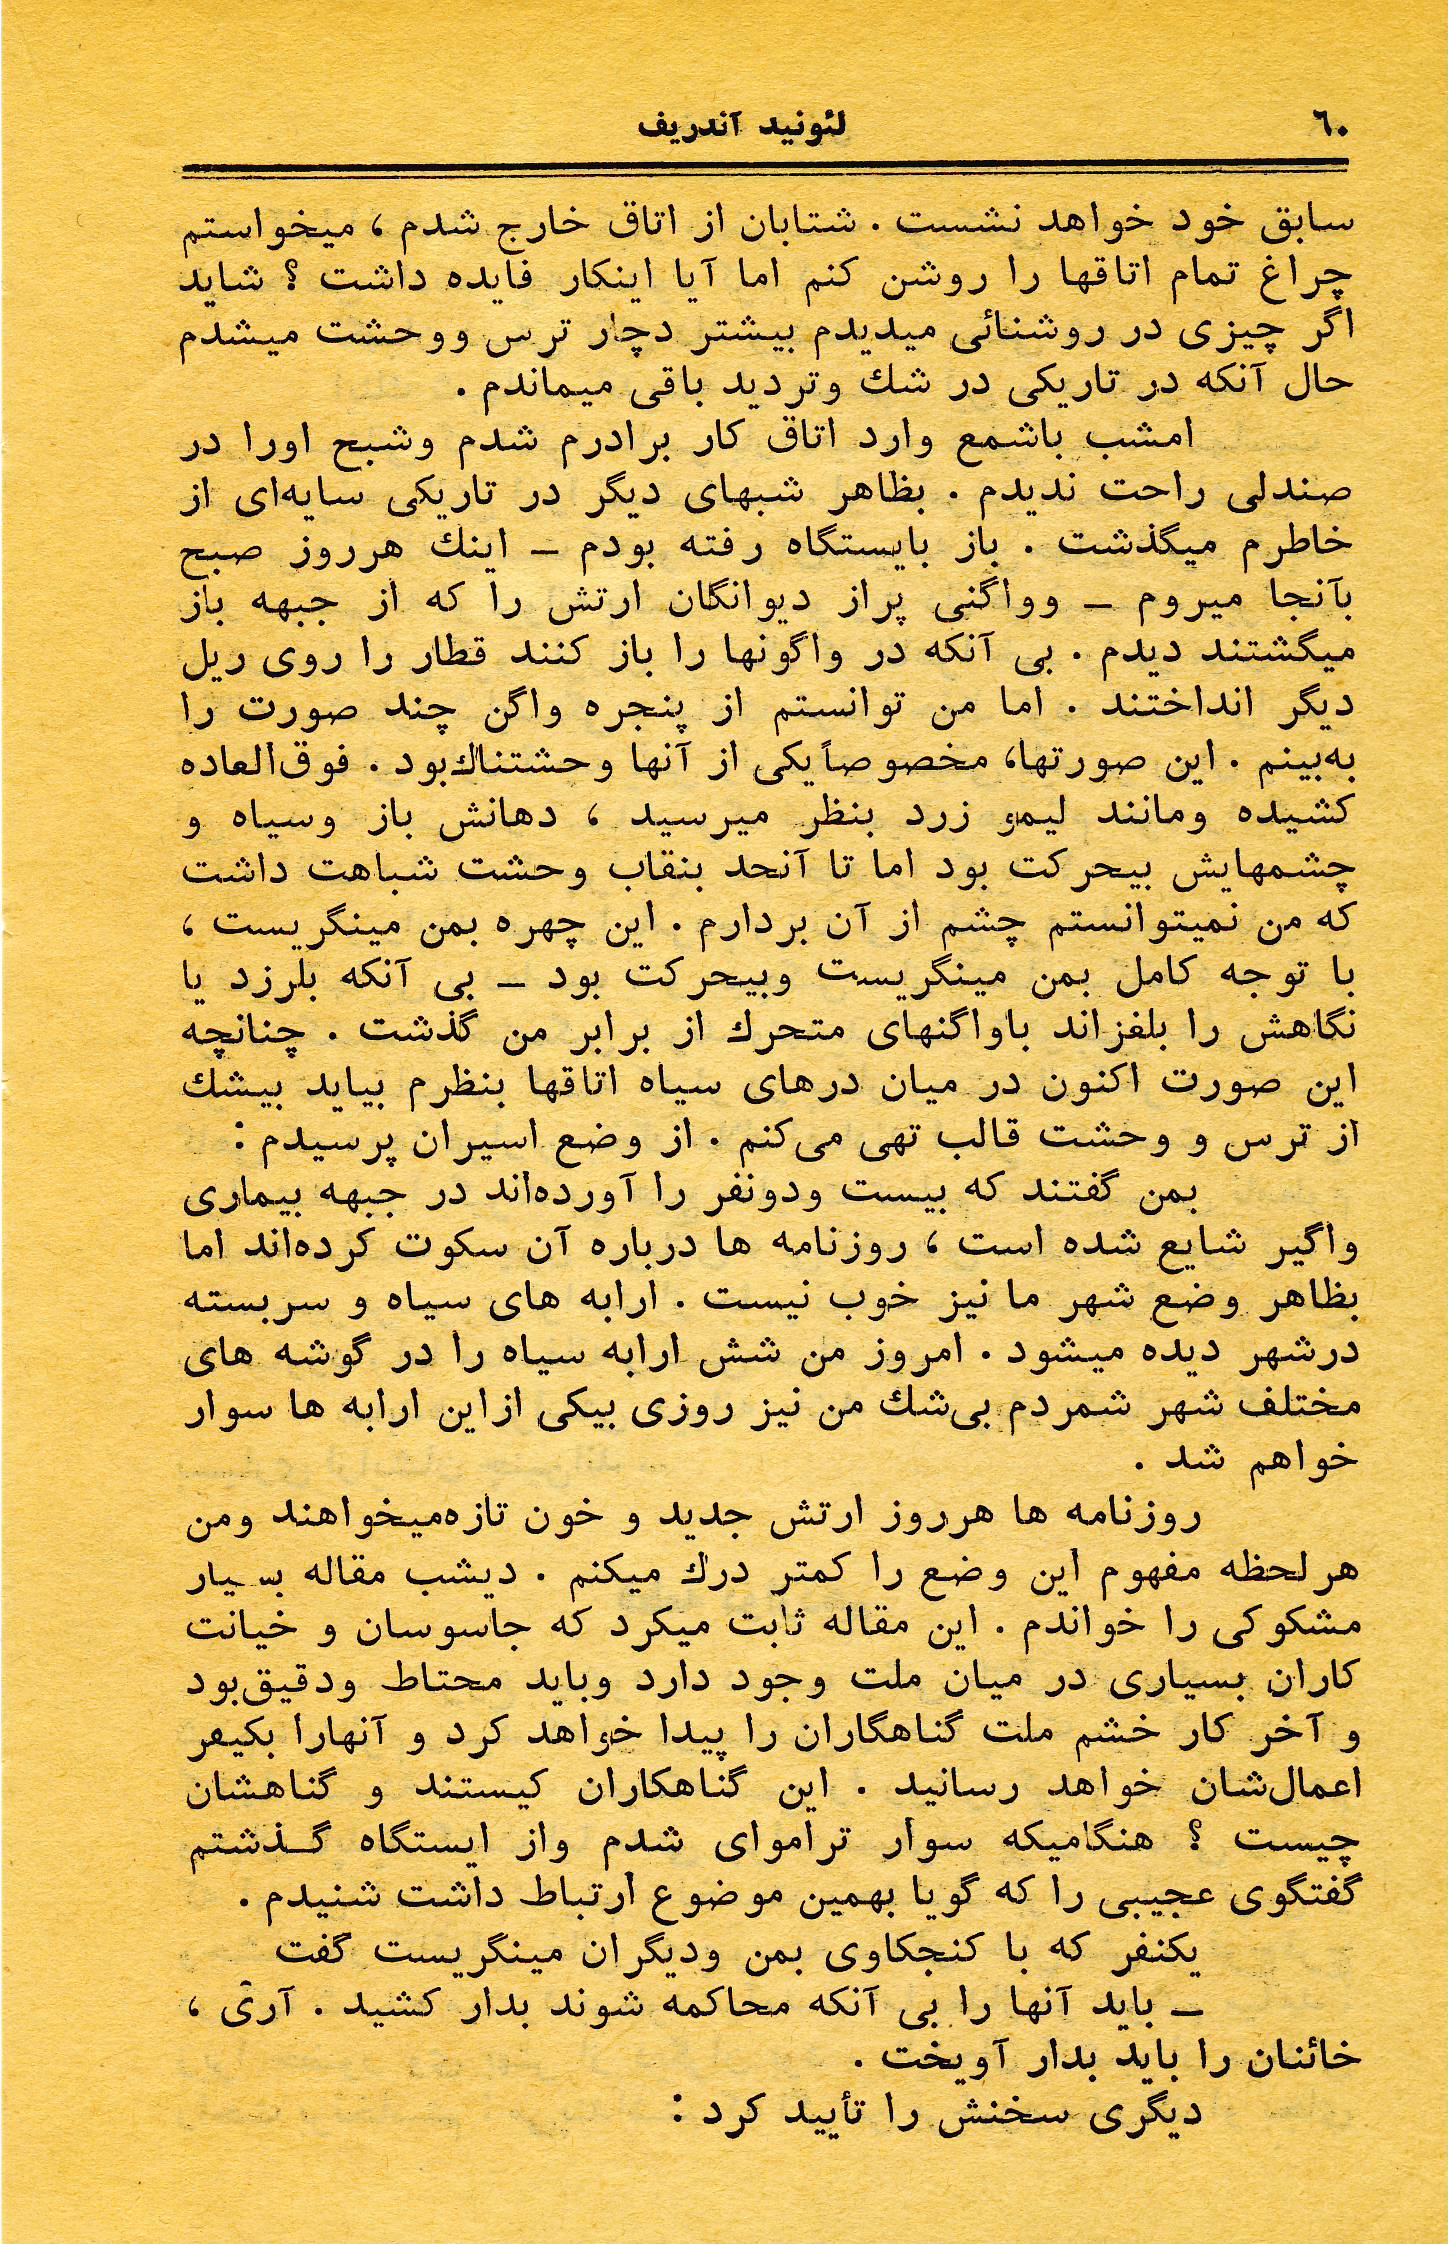 ٦٠
لئونید آندریف
سابق خود خواهد نشست . شتابان از اتاق خارج شدم ، میخواستم
چراغ تمام اتاقها را روشن کنم اما آیا اینکار فایده داشت ؟ شاید
اگر چیزی در روشنائی میدیدم بیشتر دچار ترس ووحشت میشدم
حال آنکه در تاریکی در شك وتردید باقی میماندم .
امشب باشمع وارد اتاق کار برادرم شدم وشبح اورا در
صندلی راحت ندیدم . بظاهر شبهای دیگر در تاریکی سایه‌ای از
خاطرم میگذشت . باز بایستگاه رفته بودم ـ اینك هرروز صبح
بآنجا میروم ـ وواگنی پراز دیوانگان ارتش را که از جبهه باز
میگشتند دیدم . بی آنکه در واگونها را باز کنند قطار را روی ریل
دیگر انداختند . اما من توانستم از پنجره واگن چند صورت را
به‌بینم . این صورتها، مخصوصاً یکی از آنها وحشتناك‌بود . فوق‌العاده
کشیده ومانند لیمو زرد بنظر میرسید ، دهانش باز وسیاه و
چشمهایش بیحرکت بود اما تا آنحد بنقاب وحشت شباهت داشت
که من نمیتوانستم چشم از آن بردارم . این چهره بمن مینگریست ،
با توجه کامل بمن مینگریست وبیحرکت بود ـ بی آنکه بلرزد یا
نگاهش را بلغزاند باواگنهای متحرك از برابر من گذشت . چنانچه
این صورت اکنون در میان درهای سیاه اتاقها بنظرم بیاید بیشك
از ترس و وحشت قالب تهی می‌کنم . از وضع اسیران پرسیدم :
بمن گفتند که بیست ودونفر را آورده‌اند در جبهه بیماری
واگیر شایع شده است ، روزنامه ها درباره آن سکوت کرده‌اند اما
بظاهر وضع شهر ما نیز خوب نیست . ارابه های سیاه و سربسته
درشهر دیده میشود . امروز من شش ارابه سیاه را در گوشه های
مختلف شهر شمردم بی‌شك من نیز روزی بیکی ازاین ارابه ها سوار
خواهم شد .
روزنامه ها هرروز ارتش جدید و خون تازه‌میخواهند ومن
هرلحظه مفهوم این وضع را کمتر درك میکنم . دیشب مقاله بسیار
مشکوکی را خواندم . این مقاله ثابت میکرد که جاسوسان و خیانت
کاران بسیاری در میان ملت وجود دارد وباید محتاط ودقیق‌بود
و آخر کار خشم ملت گناهگاران را پیدا خواهد کرد و آنهارا بکیفر
اعمال‌شان خواهد رسانید . این گناهکاران کیستند و گناهشان
چیست ؟ هنگامیکه سوار تراموای شدم واز ایستگاه گـذشتم
گفتگوی عجیبی را که گویا بهمین موضوع ارتباط داشت شنیدم .
یکنفر که با کنجکاوی بمن ودیگران مینگریست گفت
ـ باید آنها را بی آنکه محاکمه شوند بدار کشید . آری ،
خائنان را باید بدار آویخت .
دیگری سخنش را تأیید کرد :